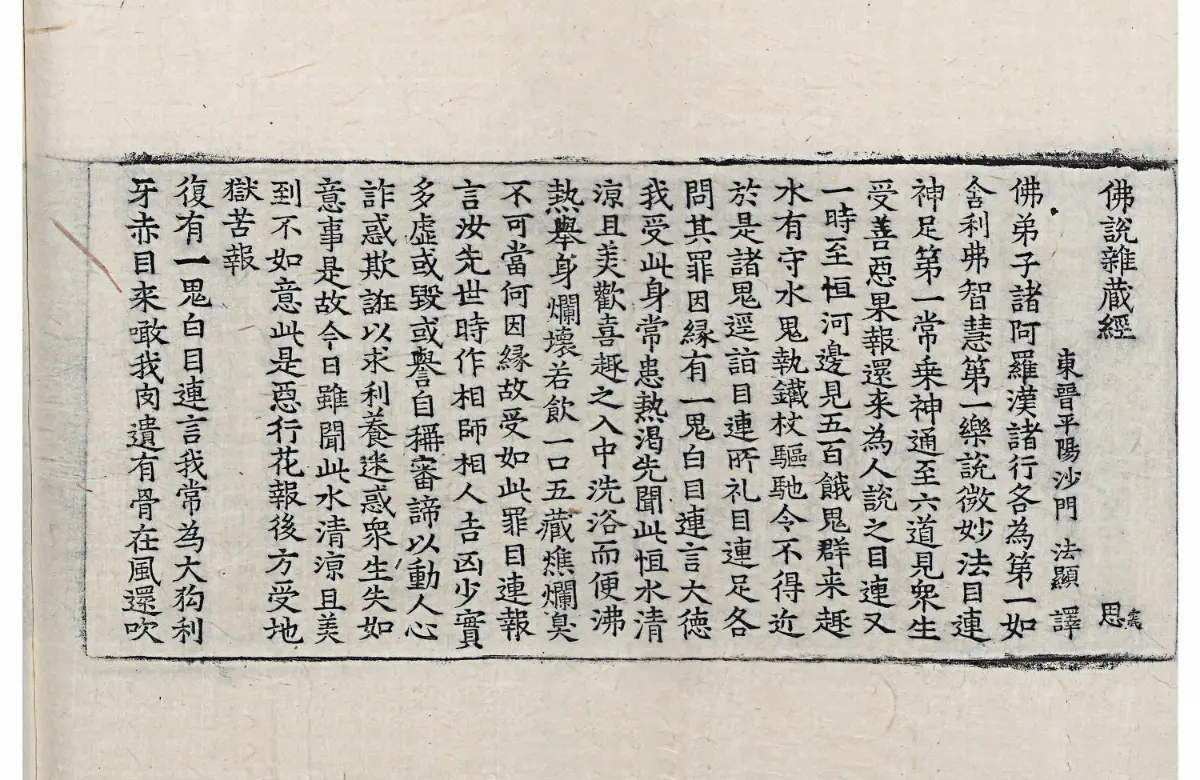 佛說雜藏經
思
東晉平陽沙門 法顯 譯
佛弟子諸阿羅漢諸行各為第一如
舍利弗智慧第一樂說微妙法目連
神足第一常乗神通至六道見衆生
受善惡果報還來為人說之目連又
一時至恒河邊見五百餓鬼群来趣
水有守水鬼執鐵杖驅馳令不得近
於是諸鬼逕詣目連所礼目連足各
問其罪因緣有一鬼白目連言大德
我受此身常患熱渴先聞此恒水清
涼且美歡喜趣之入中洗浴而便沸
熱舉身爛壞若飲一口五藏燋爛臭
不可當何因緣故受如此罪目連報
言汝先世時作相師相人吉凶少實
多虛或毀或譽自稱審諦以動人心
詐惑欺誑以求利養迷惑衆生失如
意事是故今日雖聞此水清涼且美
到不如意此是惡行花報後方受地
獄苦報
復有一鬼白目連言我常為大狗利
牙赤目来噉我肉遺有骨在風還吹